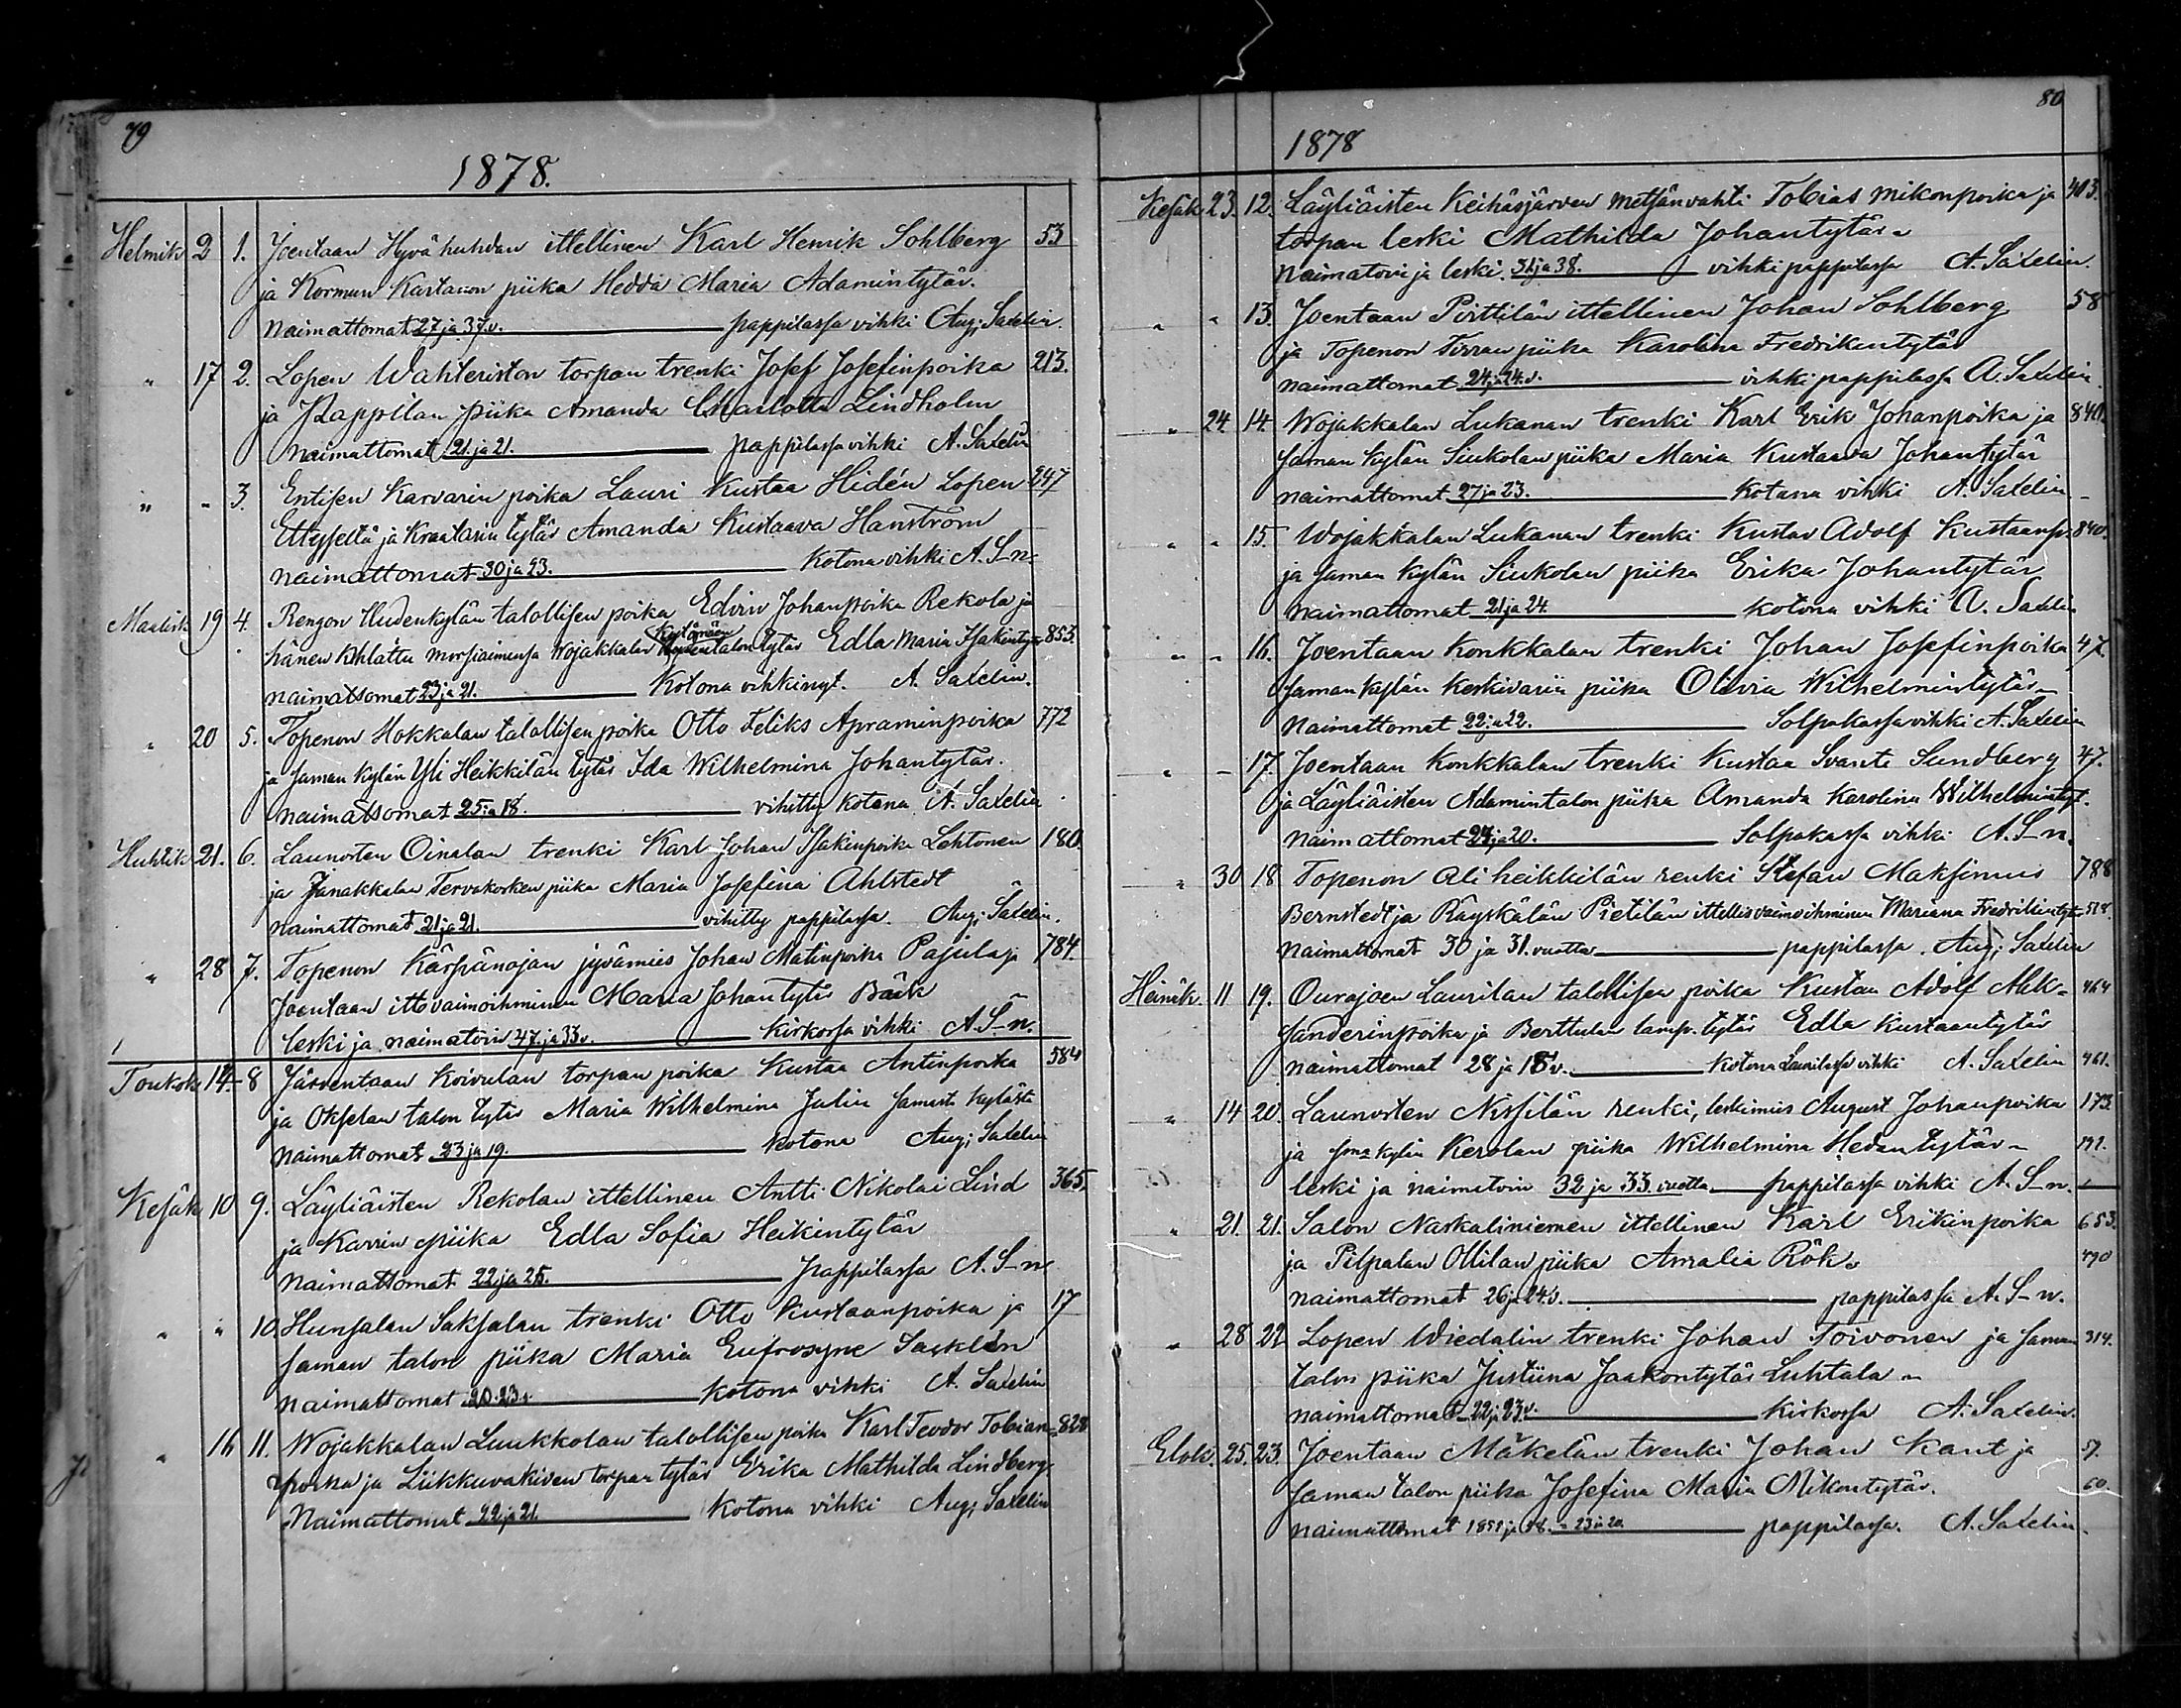 79
1878.
Helmik 2 1. Joentaan Hyvähuhdan ittellinen Karl Henrik Sohlberg 53
ja Kormun Kartanon piika Hedda Maria Adamintytär.
Naimattomat 27 ja 37 v. pappilassa vihki Aug; Saxelin.
" 17 2. Lopen Wahteriston torpan trenki Josef Josefinpoika 213.
ja Pappilan piika Amanda Charlotta Lindholm
Naimattomat 21 ja 21. pappilassa vihki A. Saxelin
" " 3. Entisen Karvarin poika Lauri Kustaa Hidén Lopen 247
ja Kraatarin tytär Amanda Kustaava Hanström
naimattomat 30 ja 23. Kotona vihki A. S-n.
Maalisk 19 4. Rengon Uudenkylän talollisen poika Edvin Johanpoika Rekola ja
hänen Kihlattu morsiaimensa Wojakkalan talon tytär Edla Maria Isakintytär 853.
naimattomat 23 ja 21. Kotona vihkinyt. A. Saxelin.
" 20 5. Topenon Hokkalan talollisen poika Otto Feliks Apraminpoika 772
ja saman kylän Yli Heikkilän tytär Ida Wilhelmina Johantytär.
naimattomat 25 ja 18. vihitty kotona A. Saxelin
Huhtik 21. 6. Launosten Oinalan trenki Karl Johan Isakinpoika Lehtonen 180
ja Janakkalan Tervakosken piika Maria Josefina Ahlstedt
naimattomat 21 ja 21. vihitty pappilassa. Aug; Saxelin.
" 28 7. Topenon Kärpänojan jyvämies Johan Matinpoika Pajula ja 784.
Joentaan ittovaimoihminen Maria Johantytär Bäck
leski ja naimatoin 47 ja 33 v. Kirkossa vihki A. S-n.
Toukok 14. 8 Järventaan Koivulan torpan poika Kustaa Antinpoika 584
ja Okselan talon tytär Maria Wilhelmina Julin samasta kylästä
naimattomat 23 ja 19. kotona Aug; Saxelin
Kesäk 10 9. Läyliäisten Rekolan ittellinen Antti Nikolai Lind 365,
ja Karrin piika Edla Sofia Heikintytär
naimattomat 22 ja 25. pappilassa A. S-n
" " 10. Hunsalan Saksalan trenki Otto Kustaanpoika ja 17
saman talon piika Maria Eufrosyne
naimattomat 20. 23 v. kotona vihki A. Saxelin
" 16 11. Wojakkalan Luukkolan talollisen poika Karl Teodor Tobian= 828
poika ja Liikkuvakiven torpan tytär Erika Mathilda Lindberg.
Naimattomat 22 ja 21. Kotona vihki Aug; Saxelin
80
1878
Kesäk 23. 12. Läyliäisten Keihäsjärven metsänvahti Tobias Mikonpoika ja 403.
torpan leski Mathilda Johantytär
naimatoin ja leski. 51 ja 38. vihki pappilassa A. Saxelin.
" " 13. Joentaan Pirttilän ittellinen Johan Sohlberg 58
ja Topenon Tirran piika Karolina Fredrikintytär
naimattomat 24 ja 24 v. vihki pappilassa A. Saxelin.
" 24. 14. Wojakkalan Lukanan trenki Karl Erik Johanpoika ja 840.
saman kylän Siukolan piika Maria Kustaava Johantytär
naimattomat 27 ja 23. Kotona vihki A. Saxelin
" " 15. Wojakkalan Lukanan trenki Kustav Adolf Kustaanp. 840.
ja saman kylän Siukolan piika Erika Johantytär
naimattomat 21 ja 24. kotona vihki A. Saxelin
" " 16. Joentaan Konkkalan trenki Johan Josefinpoika 47.
saman kylän Keskivarin piika Olivia Wilhelmintytär
Naimattomat 22 ja 22. Solpakassa vihki A. Saxelin
" - 17. Joentaan Konkkalan trenki Kustaa Svante Sundberg 47.
ja Läyliäisten Adamintalon piika Amanda Karolina Wilhelmintyt.
naimattomat 24 ja 20. Solpakassa vihki A. S-n.
" 30 18 Topenon Ali heikkilän renki Stefan Maksimus 788
Bernstedt ja Räyskälän Pietilän ittellisvaimoihminen Mariana Fredrikintytär 528.
Naimattomat 30 ja 31. vuotta pappilassa. Aug; Saxelin
Heinäk. 11 19. Ourajoen Laurilan talollisen poika Kustaa Adolf Alek= 464
sanderinpoika ja Berttulan tamp. tytär Edla Kustaantytär
naimattomat 28 ja 18 v. kotona Laurilassa vihki A. Saxelin 461.
" 14 20. Launosten Nissilän renki, leskimies August Johanpoika 173.
ja sma kylän Kerolan piika Wilhelmina Hedantytär 191.
leski ja naimatoin 32 ja 33. vuotta pappilassa vihki A. S-n.
" 21. 21. Salon Naskaliniemen ittellinen Karl Erikinpoika 653.
ja Pilpalan Ollilan piika Amalia Rök. 490
naimattomat 26 ja 24 v. pappilassa A. S-n.
" 28 22 Lopen Wiedalin trenki Johan Toivonen ja saman 314.
talon piika Justiina Jaakontytär Luhtala
naimattomat 22 ja 23 v. kirkossa A. Saxelin.
Elok. 25. 23. Joentaan Mäkelän trenki Johan Kant ja 57.
saman talon piika Josefina Maria Mikontytär. 60
naimattomat 23 ja 20. pappilassa. A. Saxelin.